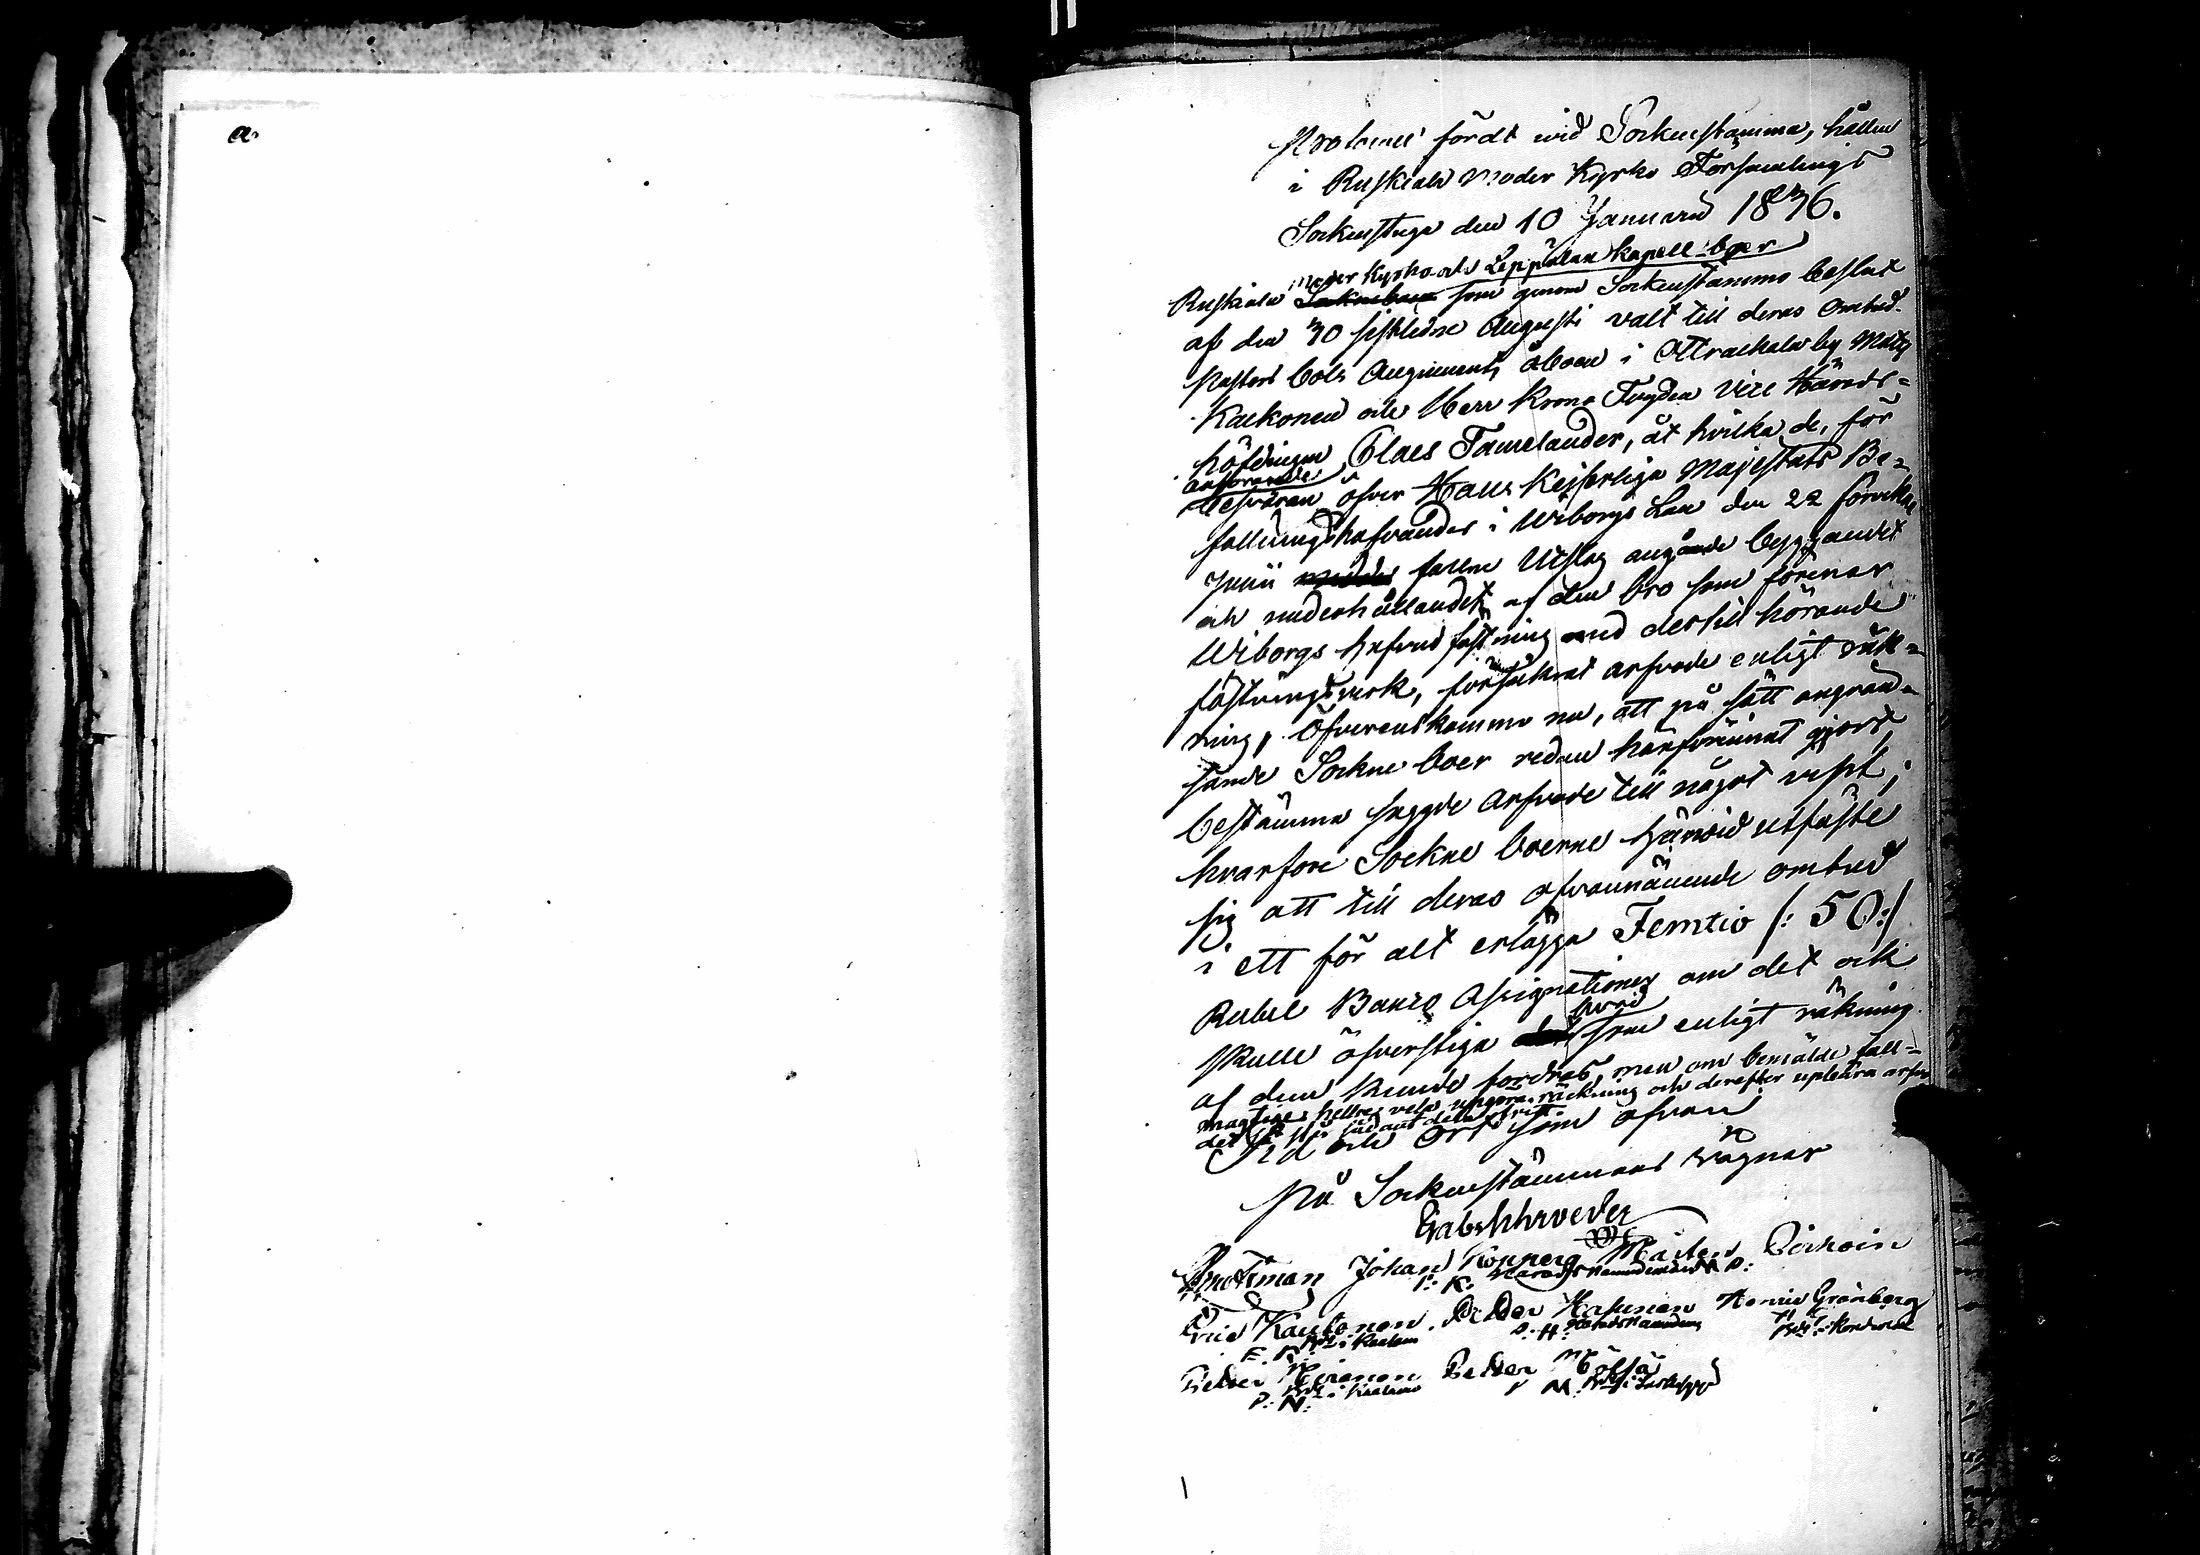 a.
Protocoll fördt wid Sockenstämma, hållen
i Ruskiala Moder Kyrko Församlings
Sockenstuga den 10 Januarii 1836.
Moder Kyrko och Leppälax kapell boer
Ruskiala Sockneboer som genom Sockenstämmo beslut
af den 30 sistledne Augusti valt till deras Ombud
Pastors bols Augments åboen i Otrackala by Mats
Kackonen och Herr Krono Fogden Vice Härads-
höfdingen Claes Tamelander, åt hvilka de, för
anförande
besväran öfver Hans Kejserliga Majestäts Be-
fallningshafvandes i Wiborgs Län den 22 sirvikne
Junii fallne Utslag angående byggandet
och underhållandet af den bro som förenar
Wiborgs hufvud fästning med dertill hörande
fästningsverk, försäkrat arfvode enligt räk-
ning, öfverenskommo nu, att på sätt angrän-
sande Sockne boer redan härförinnat gjort,
bestämma sagde Arfvode till något visst;
hvarföre Sockne boerne härvid utfäste
sig att till deras ofvannämnde ombud
i ett för alt erlägga Femtio /: 50:/
Rubel Banco Assignationer om det ock
hvad
skulle öfverstiga som enligt räkning
af dem kunde fordras, men om bemälde full-
magtige hellre velat uppgöra räckning och derefter upbära arfvo
det så står sådant dem fritt
Tid och Ort som ofvan
På Sockenstämmans vägnar
Gab. Schroeder
Johan Kopperg Mårten Pörhöin
I: K: Häradsnämndeman M P:
Eric Kautonen Petter Hasunen Henric Grönberg
E. K. Bd: i Kaalam P. H: Häradsnämndeman H G
Petter Hirvonen Petter Mölsä
P: N: P M